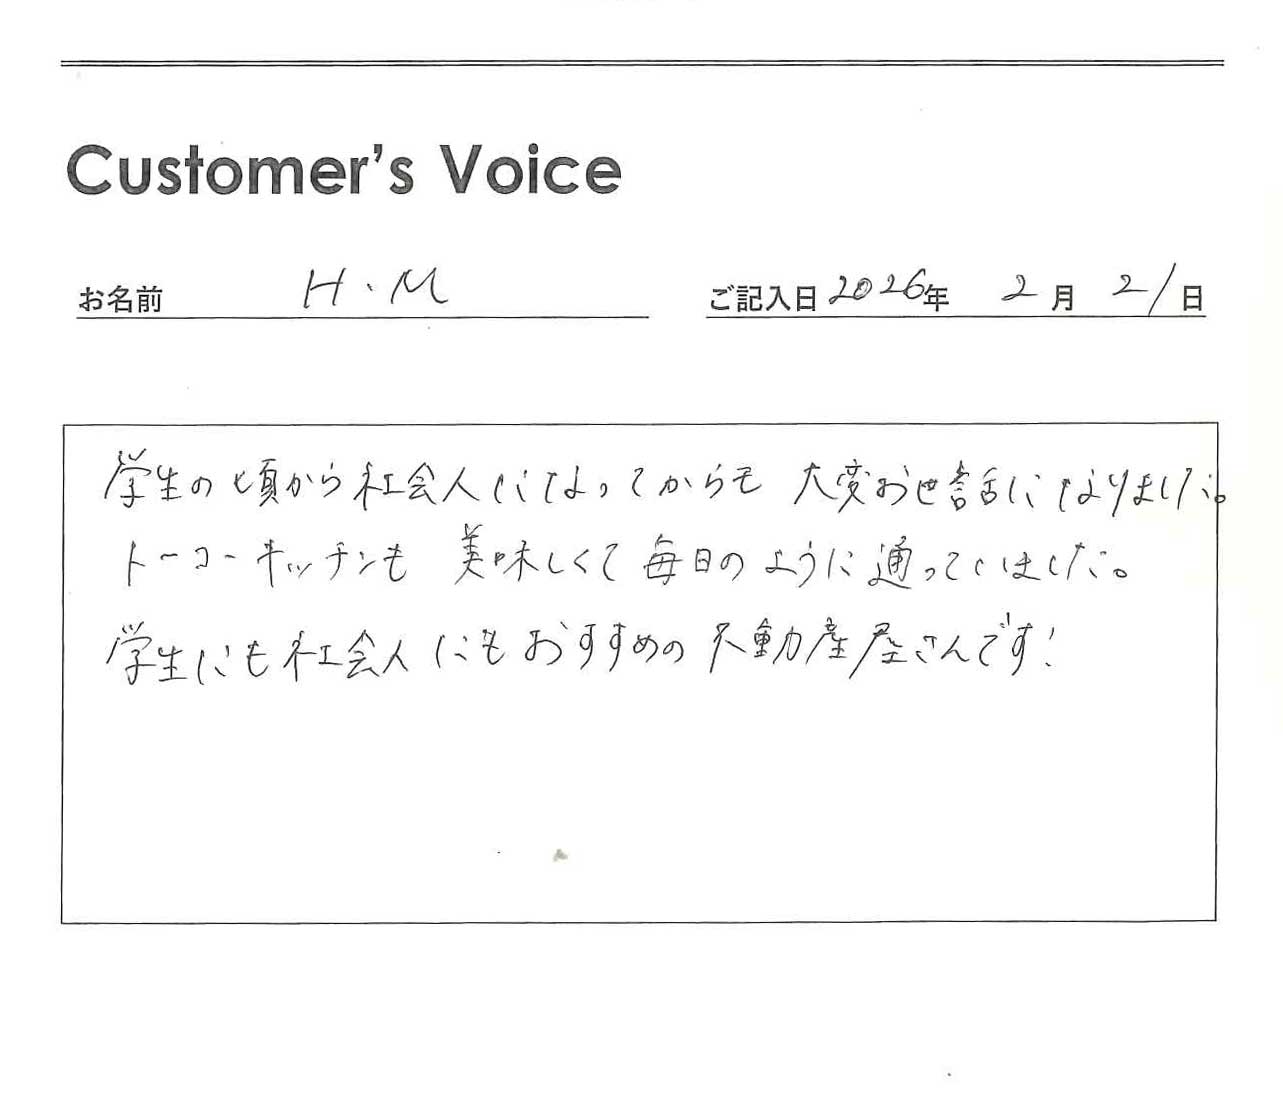 Customer's Voice
お名前 H.M ご記入日 2026年 2月 21日
学生の頃から社会人になってからも 大変お世話になりました。
トーコーキッチンも 美味しくて毎日のように通っていました。
学生にも社会人にもおすすめの不動産屋さんです!